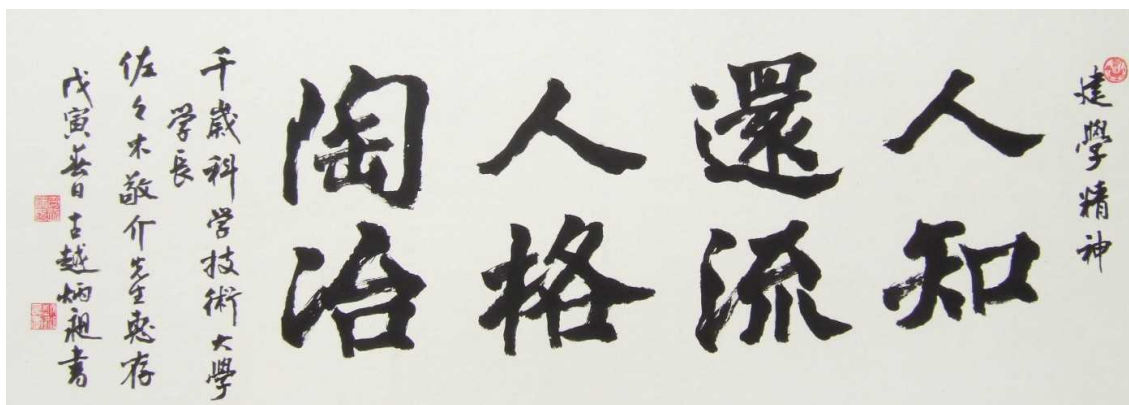 建學精神
人知
還流
人格
陶冶
千歳科学技術大學
学長
佐々木敬介先生恵存
戊寅春日古越炳昶書